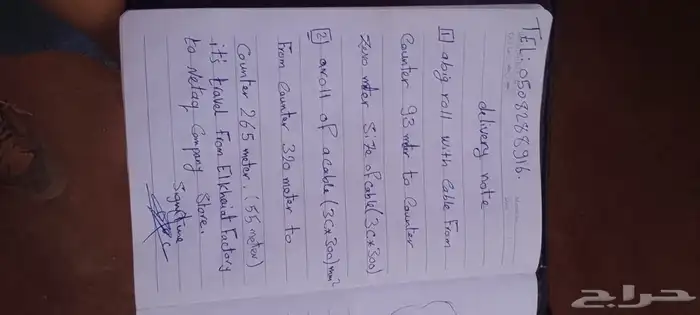 TEL: 0508288916.
delivery note
[1] a big roll with Cable From
Counter 93 mter to Counter
Zero mter Size of cable (3C x 300)
[2] aroll of acable (3C x 300) mm²
From Counter 320 mater to
Counter 265 meter. (55 meter)
it's travel From Elkhaiat Factory
to Netaq Company Store.
Signtiune
حراج